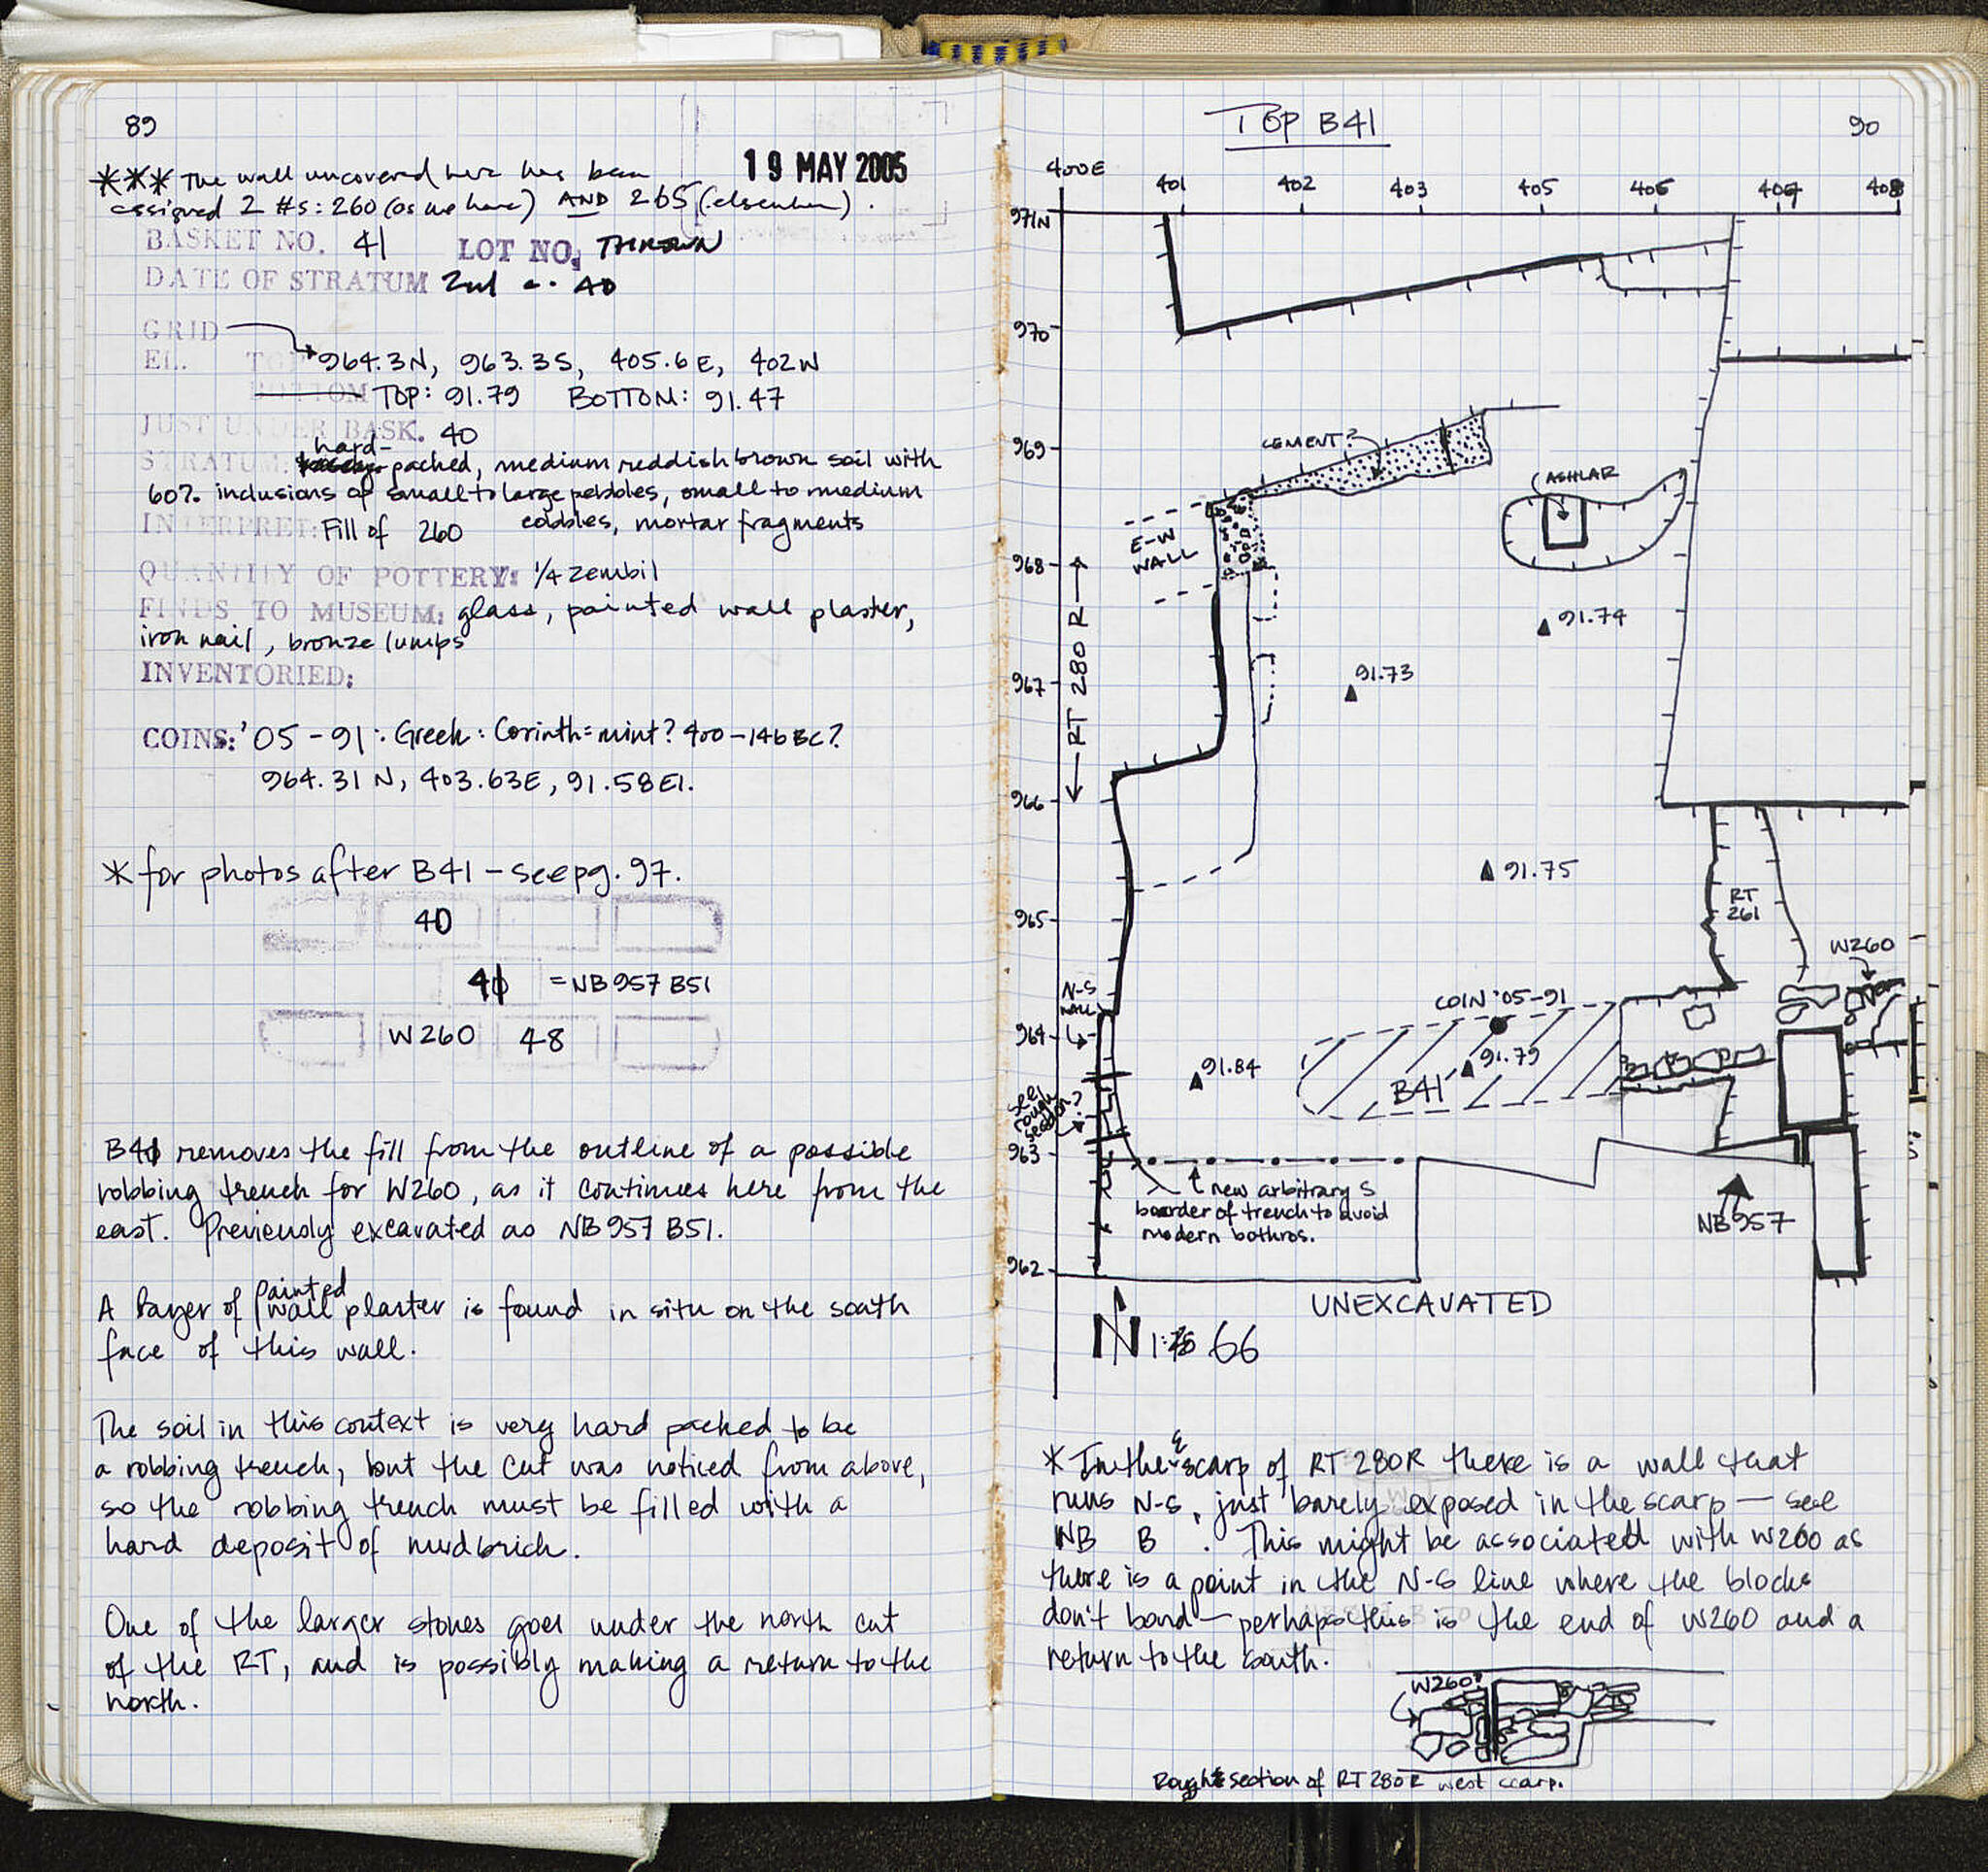 89
19 MAY 2005
*** The wall uncovered here has been
assigned 2 #s: 260 (as we have) AND 265 (elsewhere).
BASKET NO. 41 LOT NO. THROWN
DATE OF STRATUM 2nd c. AD
GRID
964.3N, 963.3S, 405.6E, 402W
EL. TOP
BOTTOM TOP: 91.79 BOTTOM: 91.47
JUST UNDER BASK. 40
hard-
STRATUM: packed, medium reddish brown soil with
60% inclusions of small to large pebbles, small to medium
cobbles, mortar fragments
INTERPRET: Fill of 260
QUANTITY OF POTTERY: 1/4 zembil
FINDS TO MUSEUM: glass, painted wall plaster,
iron nail, bronze lumps
INVENTORIED:
COINS: '05-91: Greek: Corinth=mint? 400-146 BC?
964.31 N, 403.63E, 91.58 El.
* for photos after B41 - see pg. 97.
40
41 = NB957 B51
W260 48
B41 removes the fill from the outline of a possible
robbing trench for W260, as it continues here from the
east. Previously excavated as NB957 B51.
painted
A layer of wall plaster is found in situ on the south
face of this wall.
The soil in this context is very hard packed to be
a robbing trench, but the cut was noticed from above,
so the robbing trench must be filled with a
hard deposit of mudbrick.
One of the larger stones goes under the north cut
of the RT, and is possibly making a return to the
north.
TOP B41
90
400E 401 402 403 405 406 407 408
971N
970
969
CEMENT?
ASHLAR
E-W
WALL
968
91.74
RT 280 R
967
91.73
966
91.75
965
RT
261
W260
N-S
WALL
COIN '05-91
964
91.79
91.84
B41
see
rough
section?
963
new arbitrary S
boarder of trench to avoid
modern bothros.
NB957
962
UNEXCAVATED
N 1:66
* In the scarp of RT 280R there is a wall that
runs N-S, just barely exposed in the scarp — see
NB B . This might be associated with W260 as
there is a point in the N-S line where the blocks
don't bond - perhaps this is the end of W260 and a
return to the south.
W260?
Rough section of RT 280R west scarp.